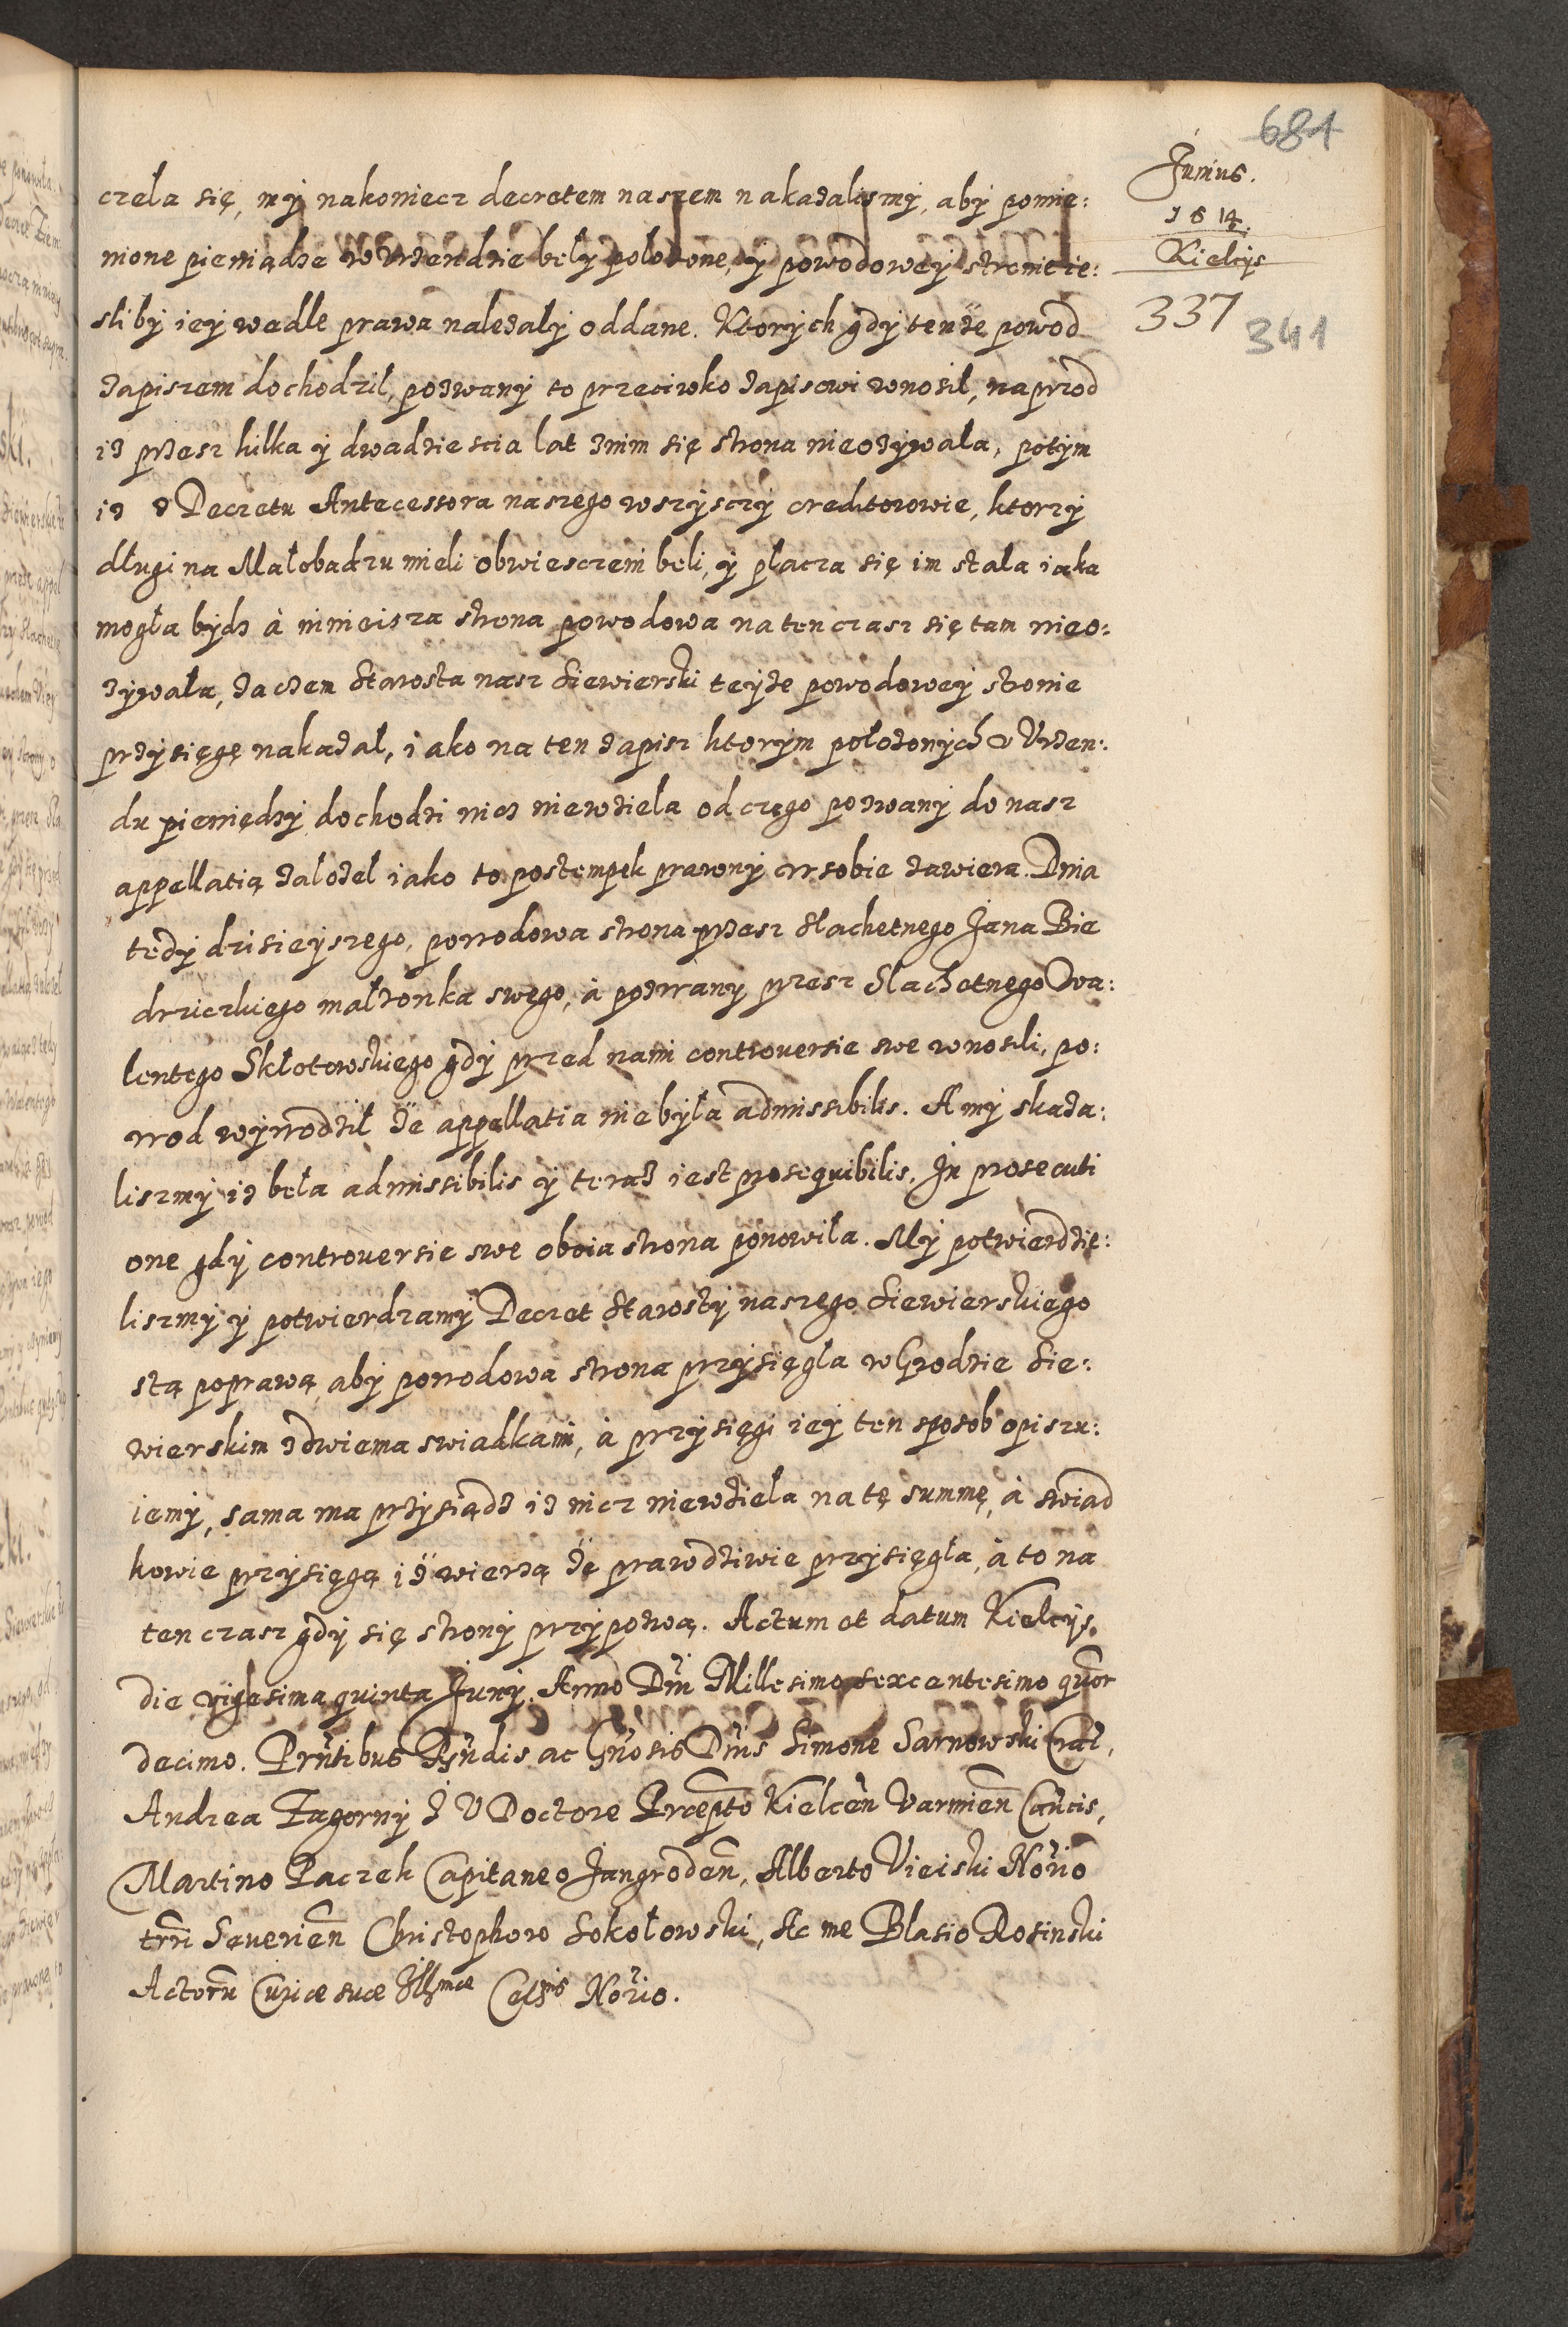 681
Junius.
1614.
Kielcijs
337 341
czela się, my nakoniecz decretem naszem nakazalismy, aby pomie:
nione pieniądze w Vrzendzie bely polozone, y powodowey stronie ie:
sliby iey wedle prawa nalezaly oddane. Ktorych gdy tenze powod
zapiszem dochodzil, pozwany to przeciwko zapisowi wnosil, naprzod
iz przesz kilka y dwadziescia lat znim się strona nieozywala, potym
iz z Decretu Antecessora naszego wszysczy creditorowie, ktorzy
długi na Małobadzu mieli obwiesczeni beli, y płacza się im stala iaka
mogła bydz à ninieisza strona powodowa na ten czasz się tam nieo:
zywała, zaczem Starosta nasz Siewierski teyze powodowey stronie
przysięgę nakazał, iako na ten zapisz ktorym położonych v Vrzen:
du pieniędzy dochodzi nicz niewziela od czego pozwany do nasz
appellatią zalozel iako to postempek prawny w sobie zawiera. Dnia
tedy dzisieyszego, powodowa strona przesz Slachetnego Jana Bie
drziczkiego malzonka swego, à pozwany przesz Slachetnego Wa:
lentego Skłotowskiego gdy przed nami controuersie swe wnosili, po:
wod wywodził ze appellatia nie była admissibilis. A my skaza:
liszmy iz beła admissibilis y teraz iest prosequibilis. In prosecuti
one gdy controuersie swe oboia strona ponowila. My potwierdzie:
liszmy y potwierdzamy Decret Starosty naszego Siewierskiego
stą poprawą aby powodowa strona przysięgła w Grodzie Sie:
wierskim zdwiema swiadkami, à przysięgi iey ten sposob opiszu:
iemy, sama ma przysiądz iz nicz niewzieła na tę summę, à swiad
kowie przysięgą iz wierzą ze prawdziwie przysięgła, à to na
ten czasz gdy się strony przypozwą. Actum et datum Kielcijs.
die vigesima quinta Junij. Anno Dñi Millesimo sexcentesimo quar
decimo. Prñtibus Rñdis ac Gñosis Dñis Simone Sarnowski
Andrea Zagorny J V Doctore Prcepto Kielceñ Varmien Cañcis,
Martino Paczek Capitaneo Jangrodeñ, Alberto Vieiski Norio
trri Seuerieñ Christophoro Sokołowski, Ac me Blasio Rosinski
Actoru Curiæ suæ Illmæ Celsnis Norio.